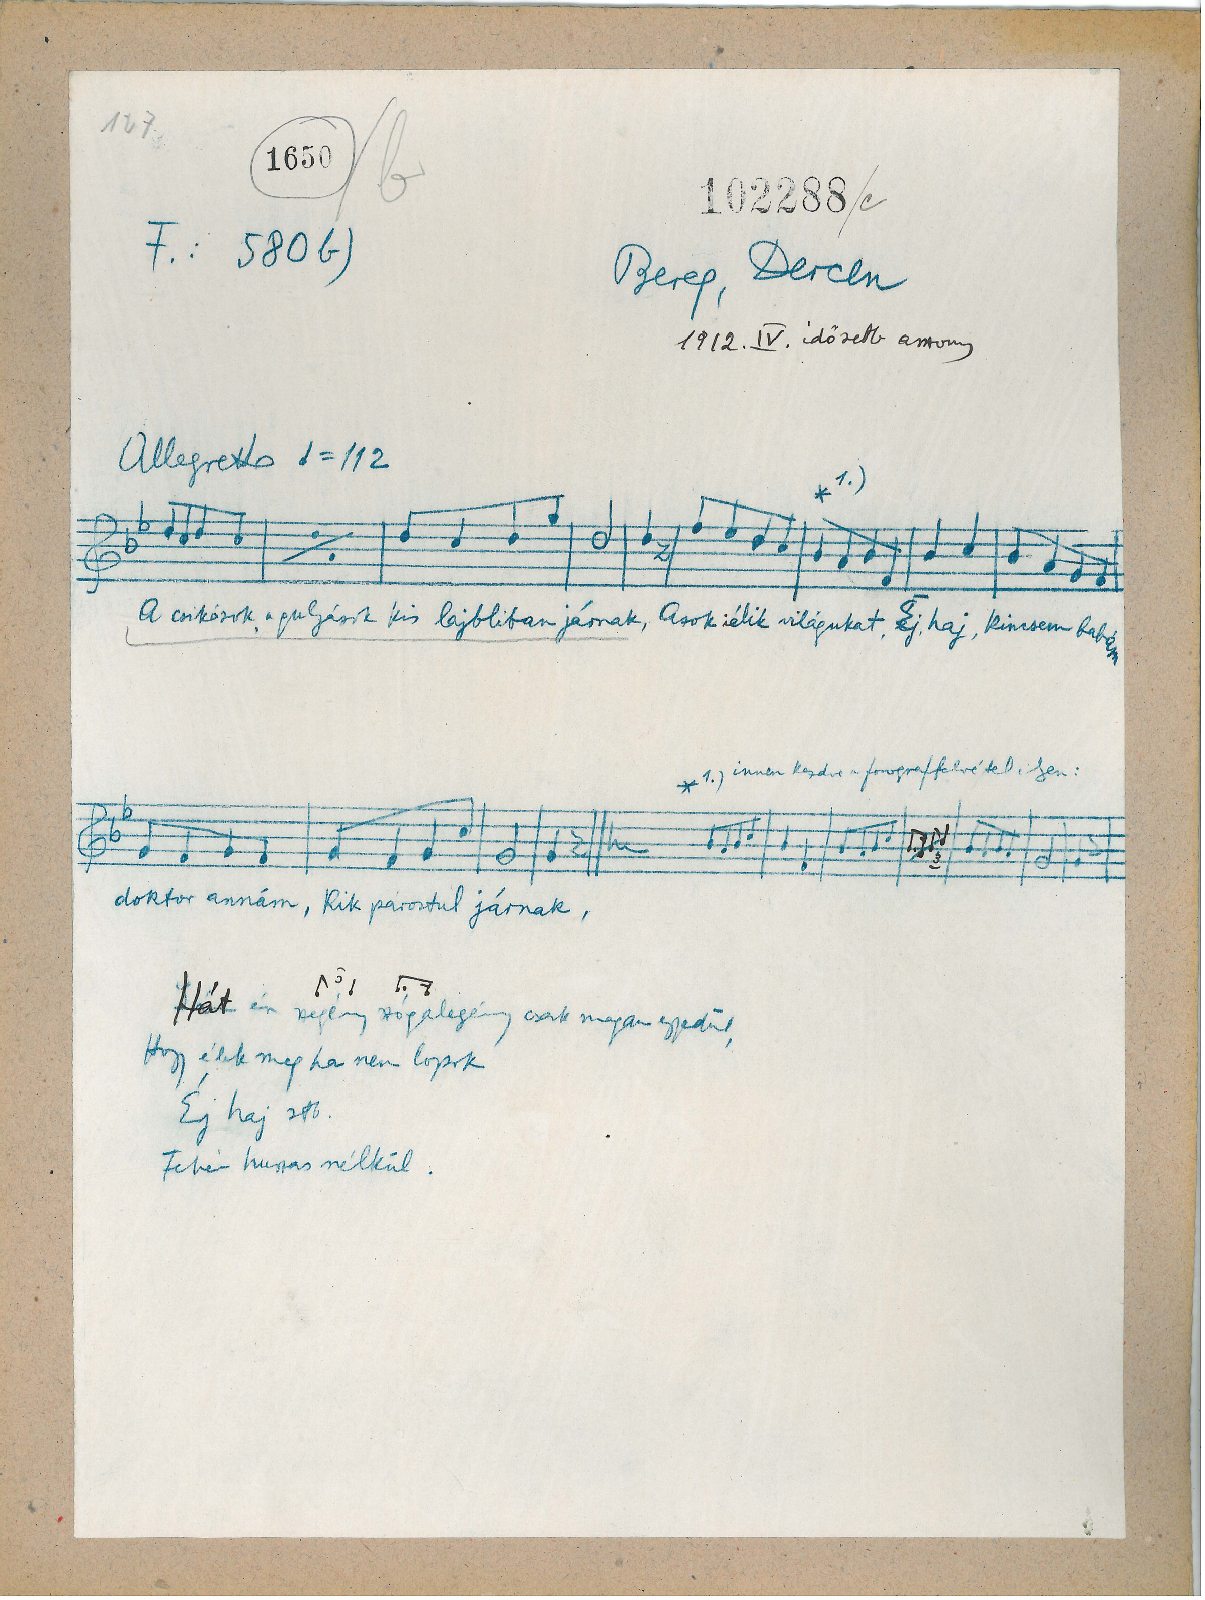 127
1650 /b
102288/c
F.: 580 b)
Bereg, Dercen
1912. IV. idősebb asszony
Allegretto ♩=112
* 1.)
A csikósok, a gulyások kis lajbliban járnak, Azok élik világukat, Ej, haj, kincsem babám
* 1.) innen kezdve a fonograffelvételen:
doktor annám, kik párostul járnak,
3
Hát én szegény szógalegény csak magam egyedül,
Hogy élek meg ha nem lopok
Éj haj stb.
Fehér húzás nélkül.